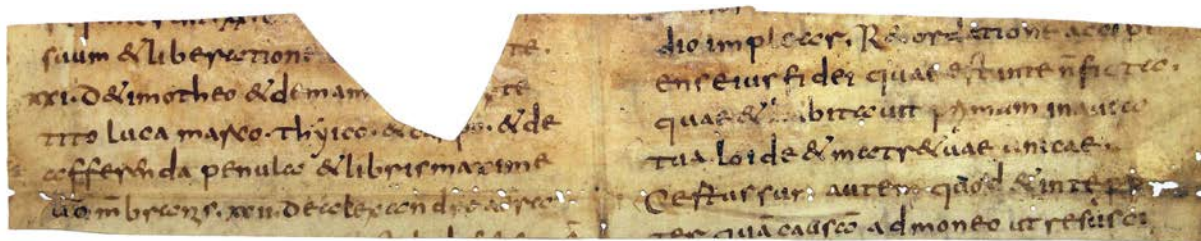 suum & liberatione te.
xxi. D& imotheo & demam te
tito luca marco. thyico. & carpo. & de
afferenda penula & libris maxime
xxii. De alexandro aerar
dio implear. R&ordatione accipi
ens eius fidei quae est in te n̄ ficta.
quae & habitauit primum in auia
tua loide & matr& uae unicae.
Certus sum autem quod & in te per
ter quā causā admoneo ut resusci